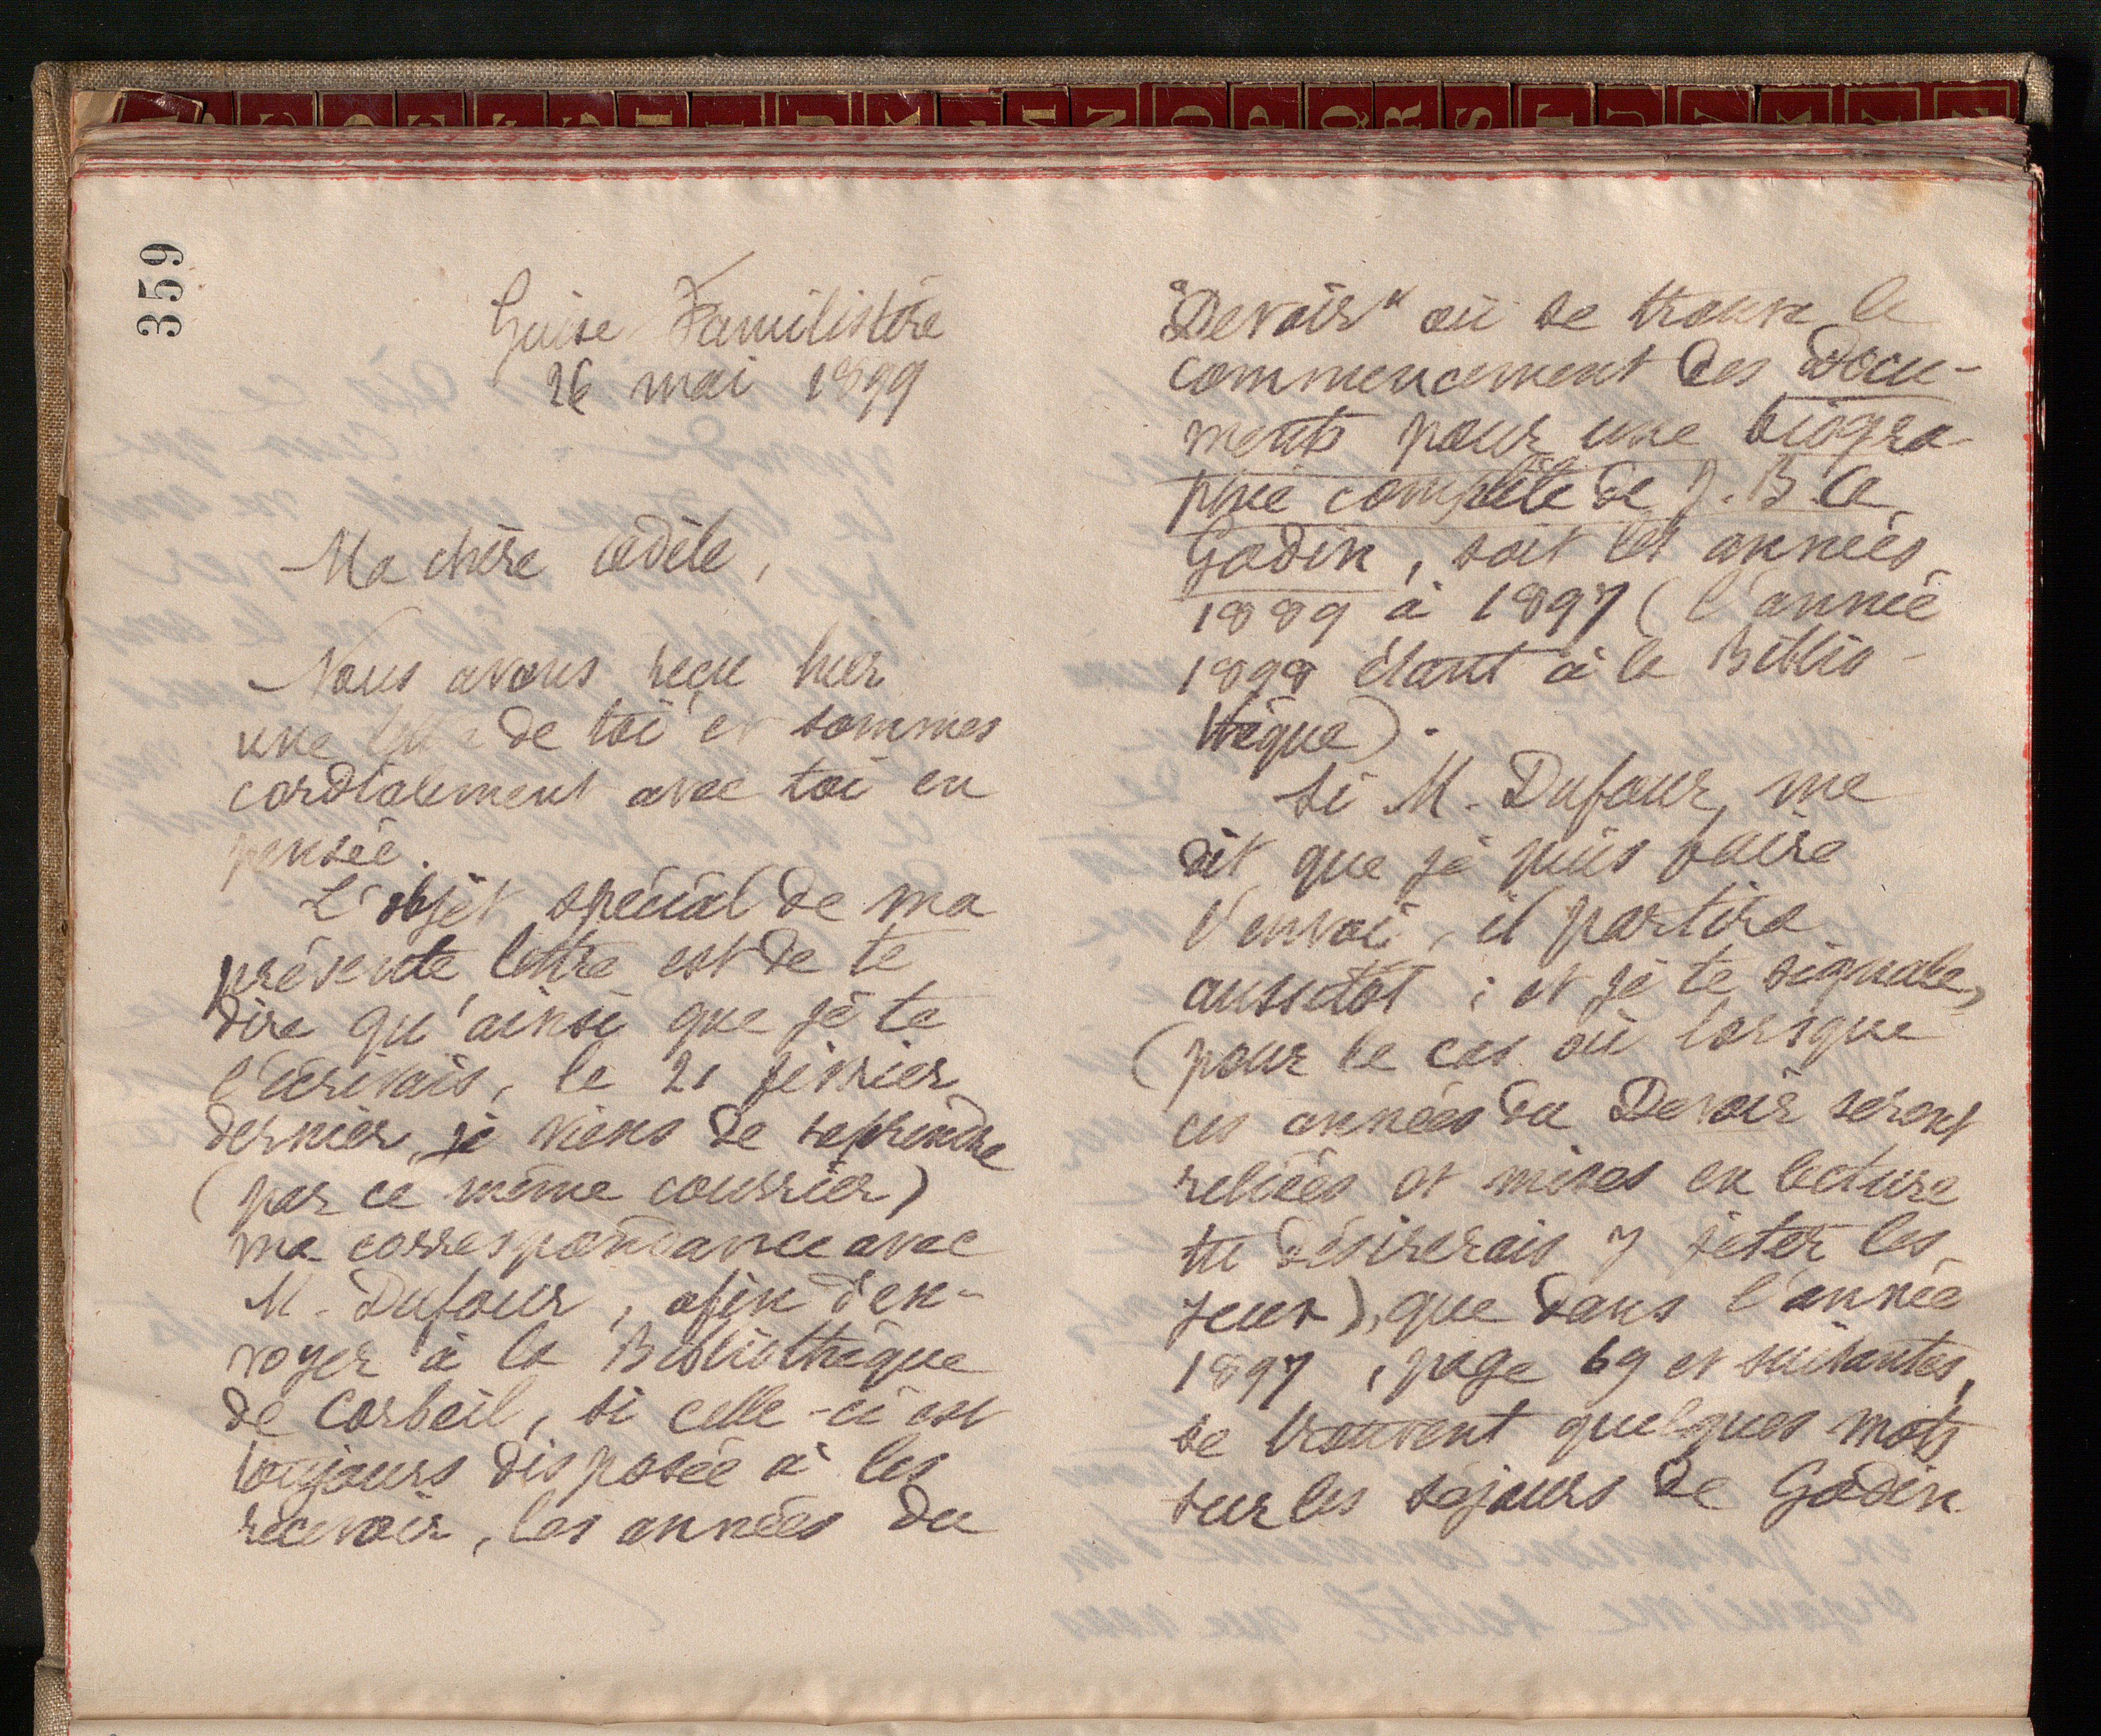 359
Guise Familistère
26 mai 1899
Ma chère Adèle,
Nous avons reçu hier
une de toi et sommes
cordialement avec toi en
pensée.
L'objet spécial de ma
présente lettre est de te
dire qu'ainsi que je te
l'écrivais, le 21 février
dernier, je viens de reprendre
(par ce même courrier)
ma correspondance avec
M. Dufour, afin d'en-
voyer à la Bibliothèque
de Corbeil, si celle-ci est
toujours disposée à les
recevoir, les années du
"Devoir" où se trouve le
commencement des Docu-
ments pour une biogra-
phie complète de J. B. A.
Godin, soit les années
1889 à 1897 (l'année
1898 étant à la Biblio-
thèque).
Si M. Dufour me
dit que je puis faire
l'envoi, il partira
aussitôt ; et je te signale,
(pour le cas où lorsque
ces années du Devoir seront
reliées et mises en lecture
tu désirerais y jeter les
yeux), que dans l'année
1897, page 69 et suivantes,
se trouvent quelques mots
sur les séjours de Godin
J K L M N O P Q R S T U